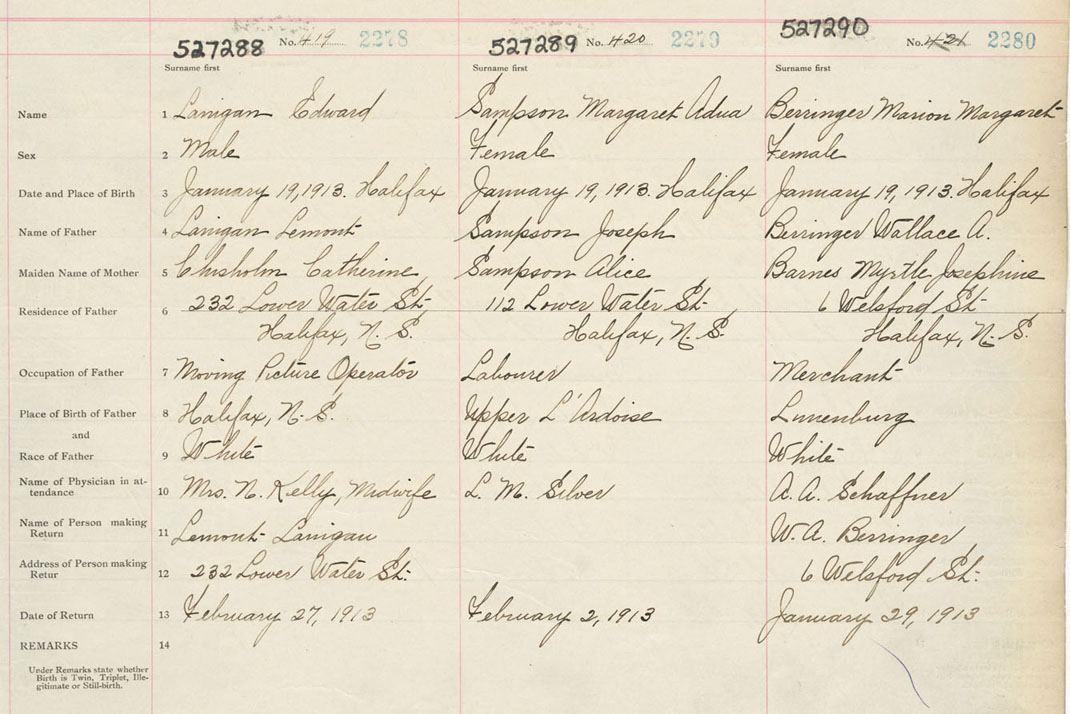 527288 No. 419 2278 527289 No. 420 2279 527290 No. 421 2280
Surname first Surname first Surname first
Name 1 Lanigan Edward Sampson Margaret Adua Berringer Marion Margaret
Sex 2 Male Female Female
Date and Place of Birth 3 January 19, 1913. Halifax January 19, 1913. Halifax January 19, 1913. Halifax
Name of Father 4 Lanigan Lemont Sampson Joseph Berringer Wallace A.
Maiden Name of Mother 5 Chisholm Catherine Sampson Alice Barnes Myrtle Josephine
Residence of Father 6 232 Lower Water St. 112 Lower Water St. 6 Welsford St.
Halifax, N. S. Halifax, N. S. Halifax, N. S.
Occupation of Father 7 Moving Picture Operator Labourer Merchant
Place of Birth of Father 8 Halifax, N. S. Upper L'Ardoise Lunenburg
and
Race of Father 9 White White White
Name of Physician in at-
tendance 10 Mrs. N. Kelly, Midwife L. M. Silver A. A. Schaffner
Name of Person making
Return 11 Lemont Lanigan W. A. Berringer
Address of Person making
Retur 12 232 Lower Water St. 6 Welsford St.
Date of Return 13 February 27, 1913 February 2, 1913 January 29, 1913
REMARKS 14
Under Remarks state whether
Birth is Twin, Triplet, Ille-
gitimate or Still-birth.